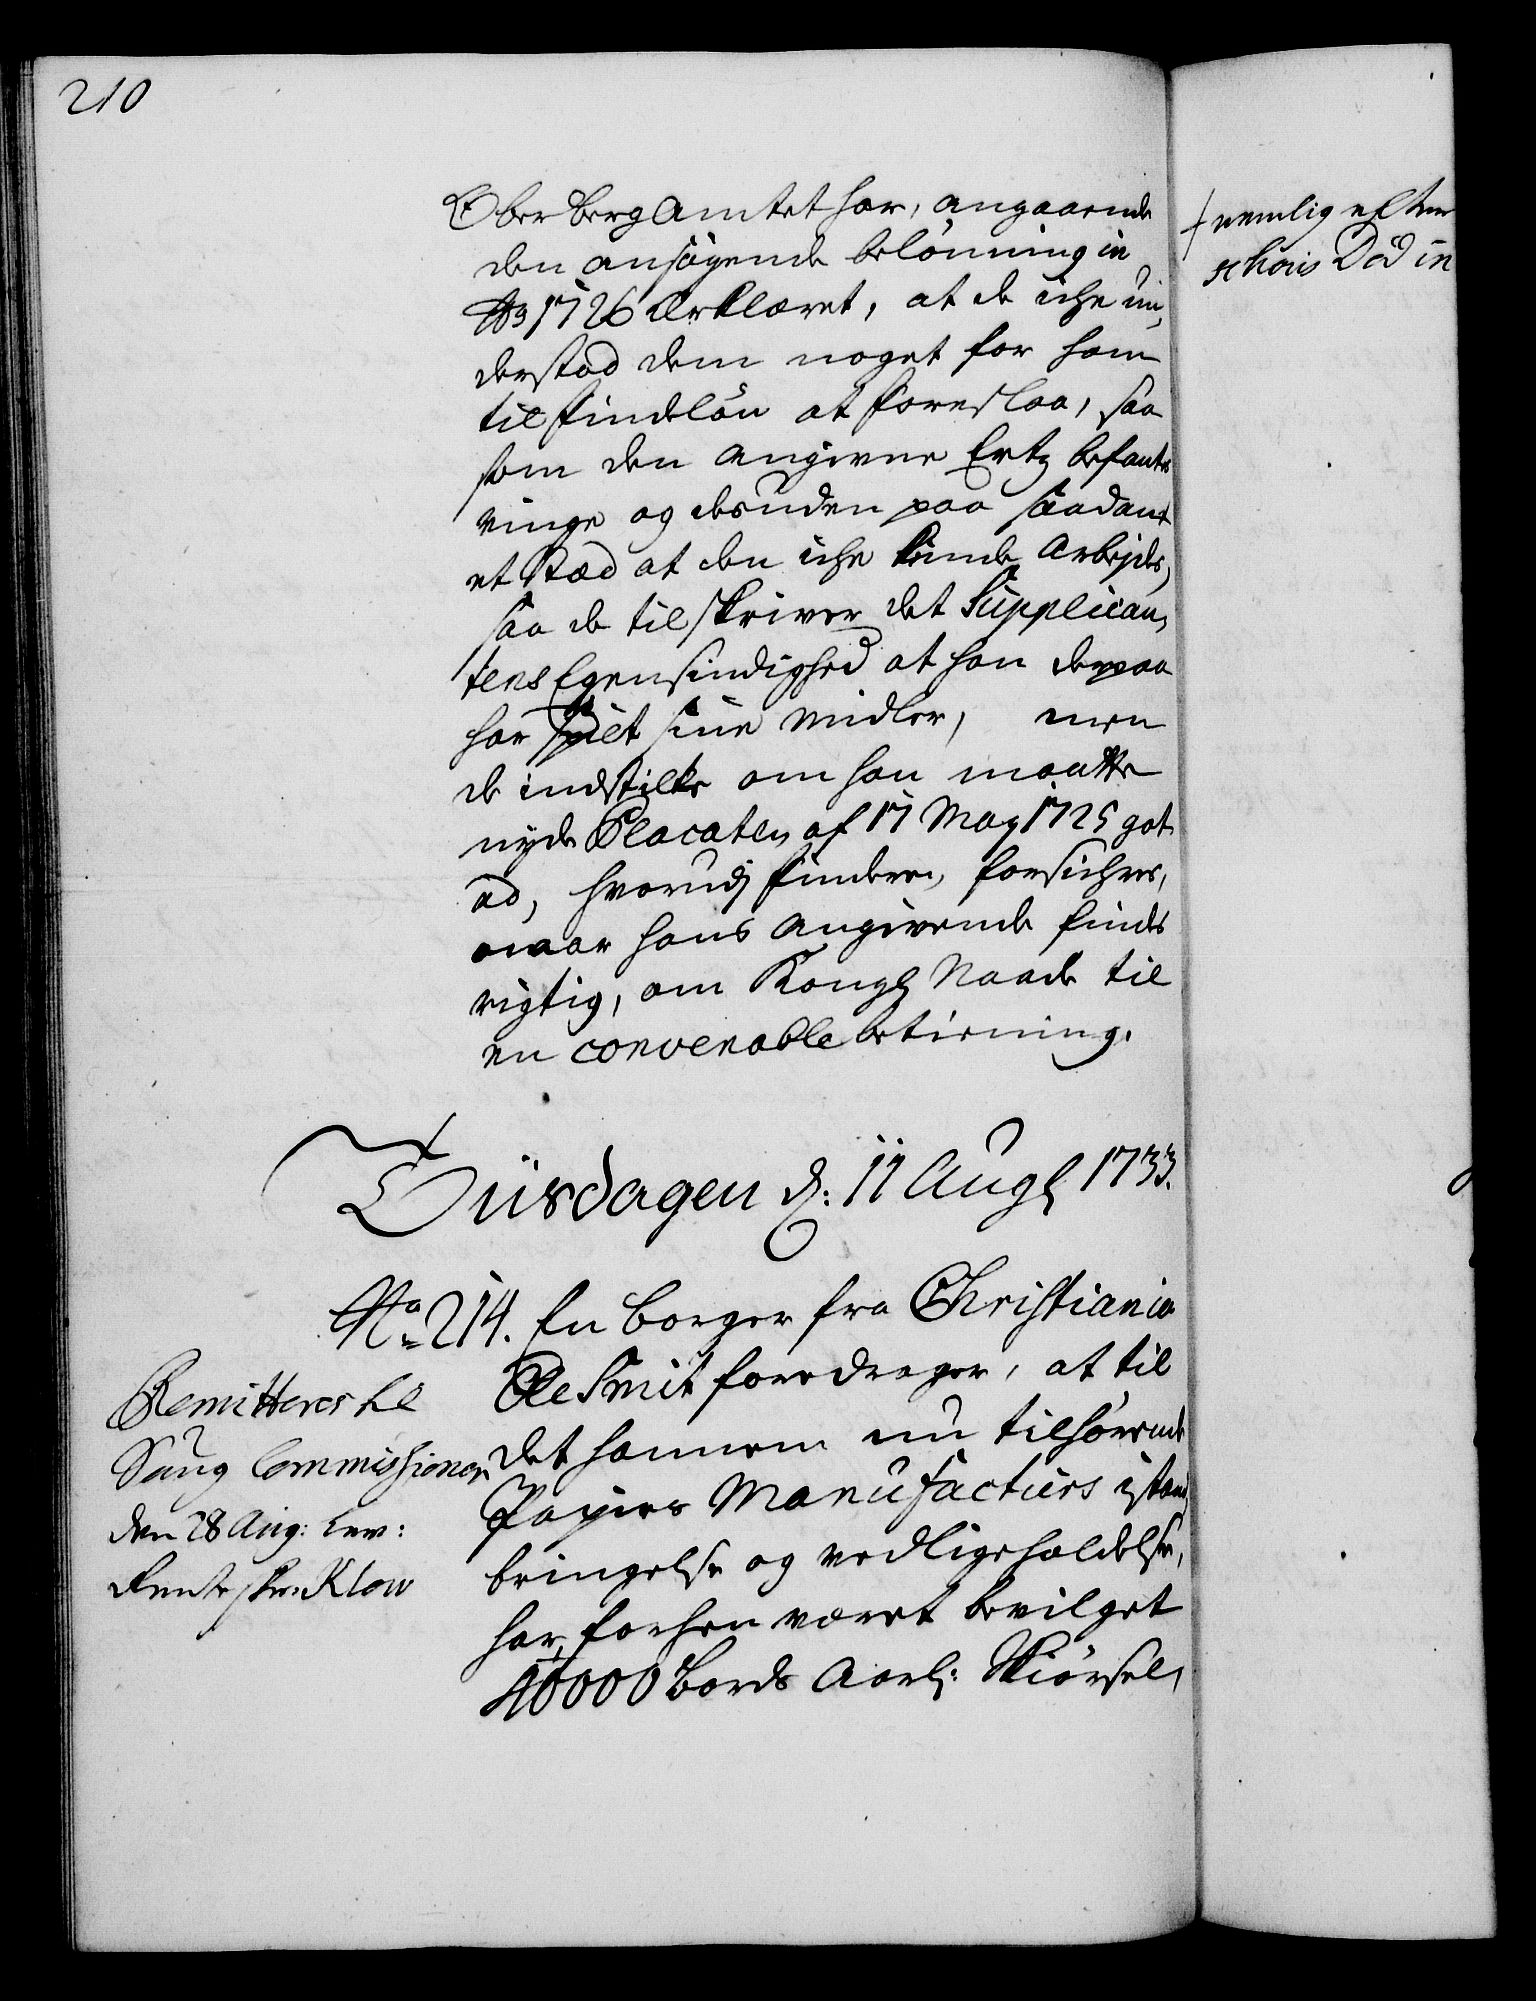 210
Ober Berg Amtet har, angaaende
den ansøgende belønning in
Ao 1726 Erklæret, at de iche un,
derstod dem noget for ham
til findeløn at foreslaa, saa
som den angivne Ertz befantes
ringe og desuden paa saadant
et stæd at den iche kunde Arbejdes,
saa de tilskriver det Supplican,
tens Egensindighed at han derpaa
har spilt sine midler, men
de indstilte om han maatte
nyde Placaten af 17 May 1725 got
ad, hvorudj finderen forsichres,
naar hans angivende findes
rigtig, om Kongl Naade til
en convenable betiening.
Tüsdagen d: 11 Augl 1733.
No 214. En borger fra Christiania
Ole Smit foredrager, at til
det hannem nu tilhørende
Papiers Manufacturs istand,
bringelse og vedligeholdelse,
har forhen været bevilget
40000 Bords Aarl: Skiørsel,
Remitteres til
Saug Commissionen
den 28 Aug: Lev:
Renteskr: Klow
nemlig efter
hans Død in